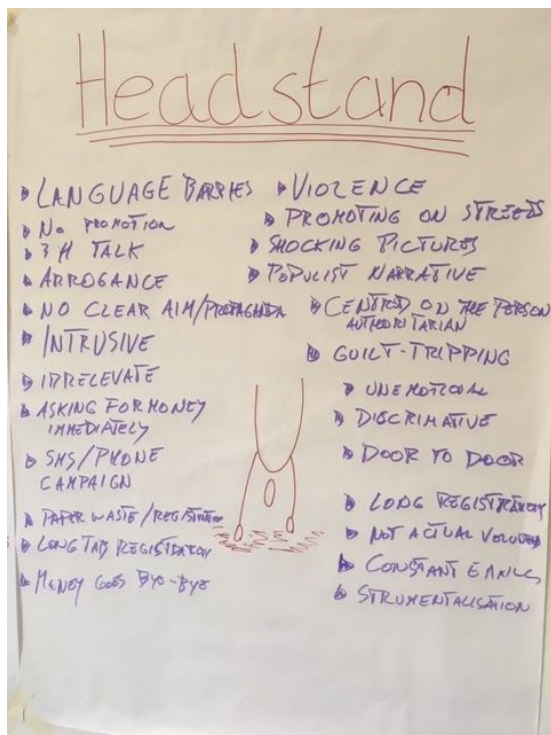 Headstand
LANGUAGE BARRIES
NO PROMOTION
3 H TALK
ARROGANCE
NO CLEAR AIM/PROPAGANDA
INTRUSIVE
IRRELEVATE
ASKING FOR MONEY
IMMEDIATELY
SMS/PHONE
CAMPAIGN
PAPER WASTE/
LONG REGISTRATION
MONEY GOES BYE-BYE
VIOLENCE
PROMOTING ON STREETS
SHOCKING PICTURES
POPULIST NARRATIVE
CENTRED ON THE PERSON
AUTHORITARIAN
GUILT-TRIPPING
UNEMOTIONAL
DISCRIMATIVE
DOOR TO DOOR
LONG REGISTRATION
NOT ACTUAL
CONSTANT EMAILS
STRUMENTALISATION